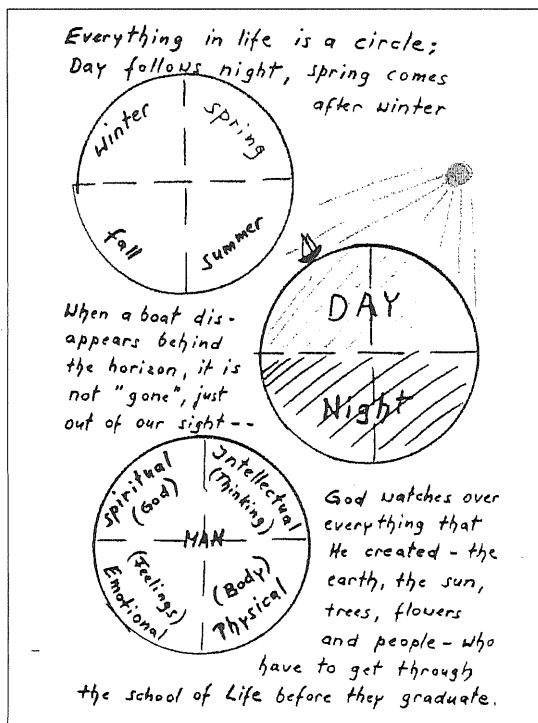 Everything in life is a circle;
Day follows night, spring comes
after winter
winter
spring
fall
summer
DAY
Night
When a boat dis-
appears behind
the horizon, it is
not "gone", just
out of our sight --
spiritual
(God)
Intellectual
(Thinking)
MAN
(Feelings)
Emotional
(Body)
Physical
God watches over
everything that
He created - the
earth, the sun,
trees, flowers
and people - who
have to get through
the school of Life before they graduate.